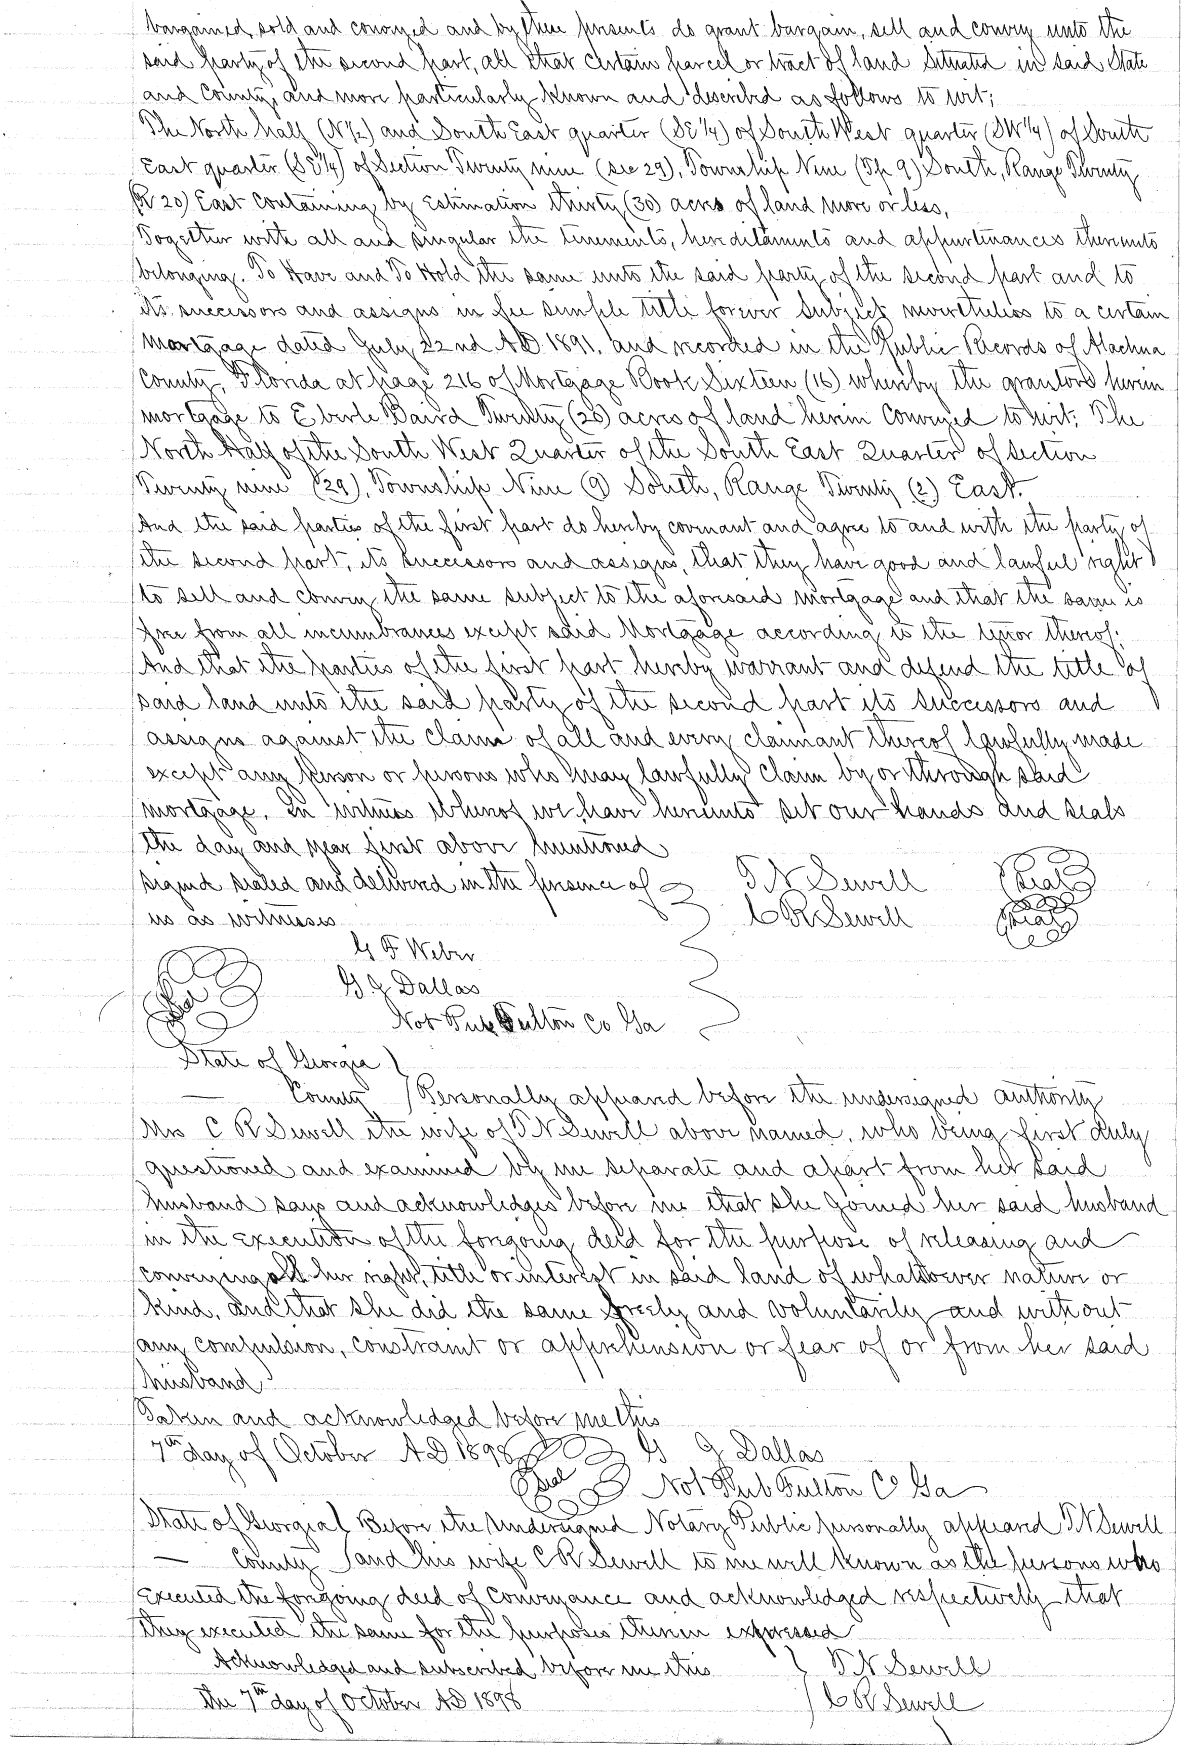 bargained, sold and conveyed and by these presents do grant bargain, sell and convey unto the
said party of the second part, all that certain parcel or tract of land situated in said State
and County, and more particularly known and described as follows to wit;
The North half (N½) and South East quarter (SE¼) of South West quarter (SW¼) of South
East quarter (SE¼) of Section Twenty nine (sec 29), Township Nine (Tp 9) South, Range Twenty
(R 20) East containing by Estimation thirty (30) acres of land more or less,
Together with all and singular the tenements, hereditaments and appurtenances thereunto
belonging. To Have and To Hold the same unto the said party of the second part and to
its successors and assigns in fee simple title forever subject nevertheless to a certain
Mortgage dated July 22nd AD 1891. and recorded in the Public Records of Alachua
County, Florida at page 216 of Mortgage Book Sixteen (16) whereby the grantors herein
mortgage to Eberle Baird Twenty (20) acres of land herein conveyed to wit; The
North Half of the South West Quarter of the South East Quarter of Section
Twenty nine (29), Township Nine (9) South, Range Twenty (2) East.
And the said parties of the first part do hereby covenant and agree to and with the party of
the second part, its successors and assigns, that they have good and lawful right
to sell and convey the same subject to the aforesaid mortgage and that the same is
free from all incumbrances except said Mortgage according to the tenor thereof;
And that the parties of the first part hereby warrant and defend the title of
said land unto the said party of the second part its successors and
assigns against the claim of all and every claimant thereof lawfully made
except any person or persons who may lawfully claim by or through said
mortgage. In witness whereof we have hereunto set our hands and seals
the day and year first above mentioned
signed sealed and delivered in the presence of T N Sewell (Seal)
us as witnesses C R Sewell (Seal)
G F Weber
G J Dallas
(Seal) Not Pub Fulton Co Ga
State of Georgia
— County Personally appeared before the undersigned authority
Mrs C R Sewell the wife of T N Sewell above named, who being first duly
questioned and examined by me separate and apart from her said
husband says and acknowledges before me that she joined her said husband
in the execution of the foregoing deed for the purpose of releasing and
conveying all her right, title or interest in said land of whatsoever nature or
kind, and that she did the same freely and voluntarily and without
any compulsion, constraint or apprehension or fear of or from her said
husband
Taken and acknowledged before me this
7th day of October AD 1898 (Seal) G J Dallas
Not Pub Fulton Co Ga
State of Georgia Before the undersigned Notary Public personally appeared T N Sewell
— County and his wife C R Sewell to me well known as the persons who
executed the foregoing deed of conveyance and acknowledged respectively that
they executed the same for the purposes therein expressed
Acknowledged and subscribed before me this T N Sewell
the 7th day of October AD 1898 C R Sewell